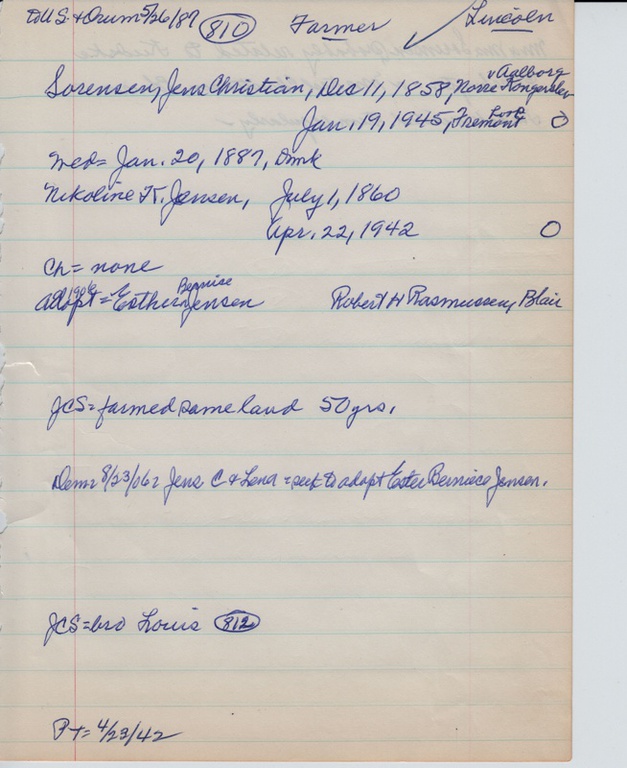 to U.S. + Orum 5/26/87 810 Farmer ✓ Lincoln
Sorensen, Jens Christian, Dec 11, 1858, Norre Kongerslev Aalborg
Jan. 19, 1945, Fremont O
Wed = Jan. 20, 1887, Dmk
Nikoline K. Jensen, July 1, 1860
Apr. 22, 1942 O
Ch = none
adopt 1906 = Esther Bernise Jensen Robert H Rasmussen, Blair
JCS = farmed same land 50 yrs.
Dem = 8/23/06 = Jens C + Lena = seek to adopt Ester Berniece Jensen.
JCS = bro Louis 812
PT = 4/23/42